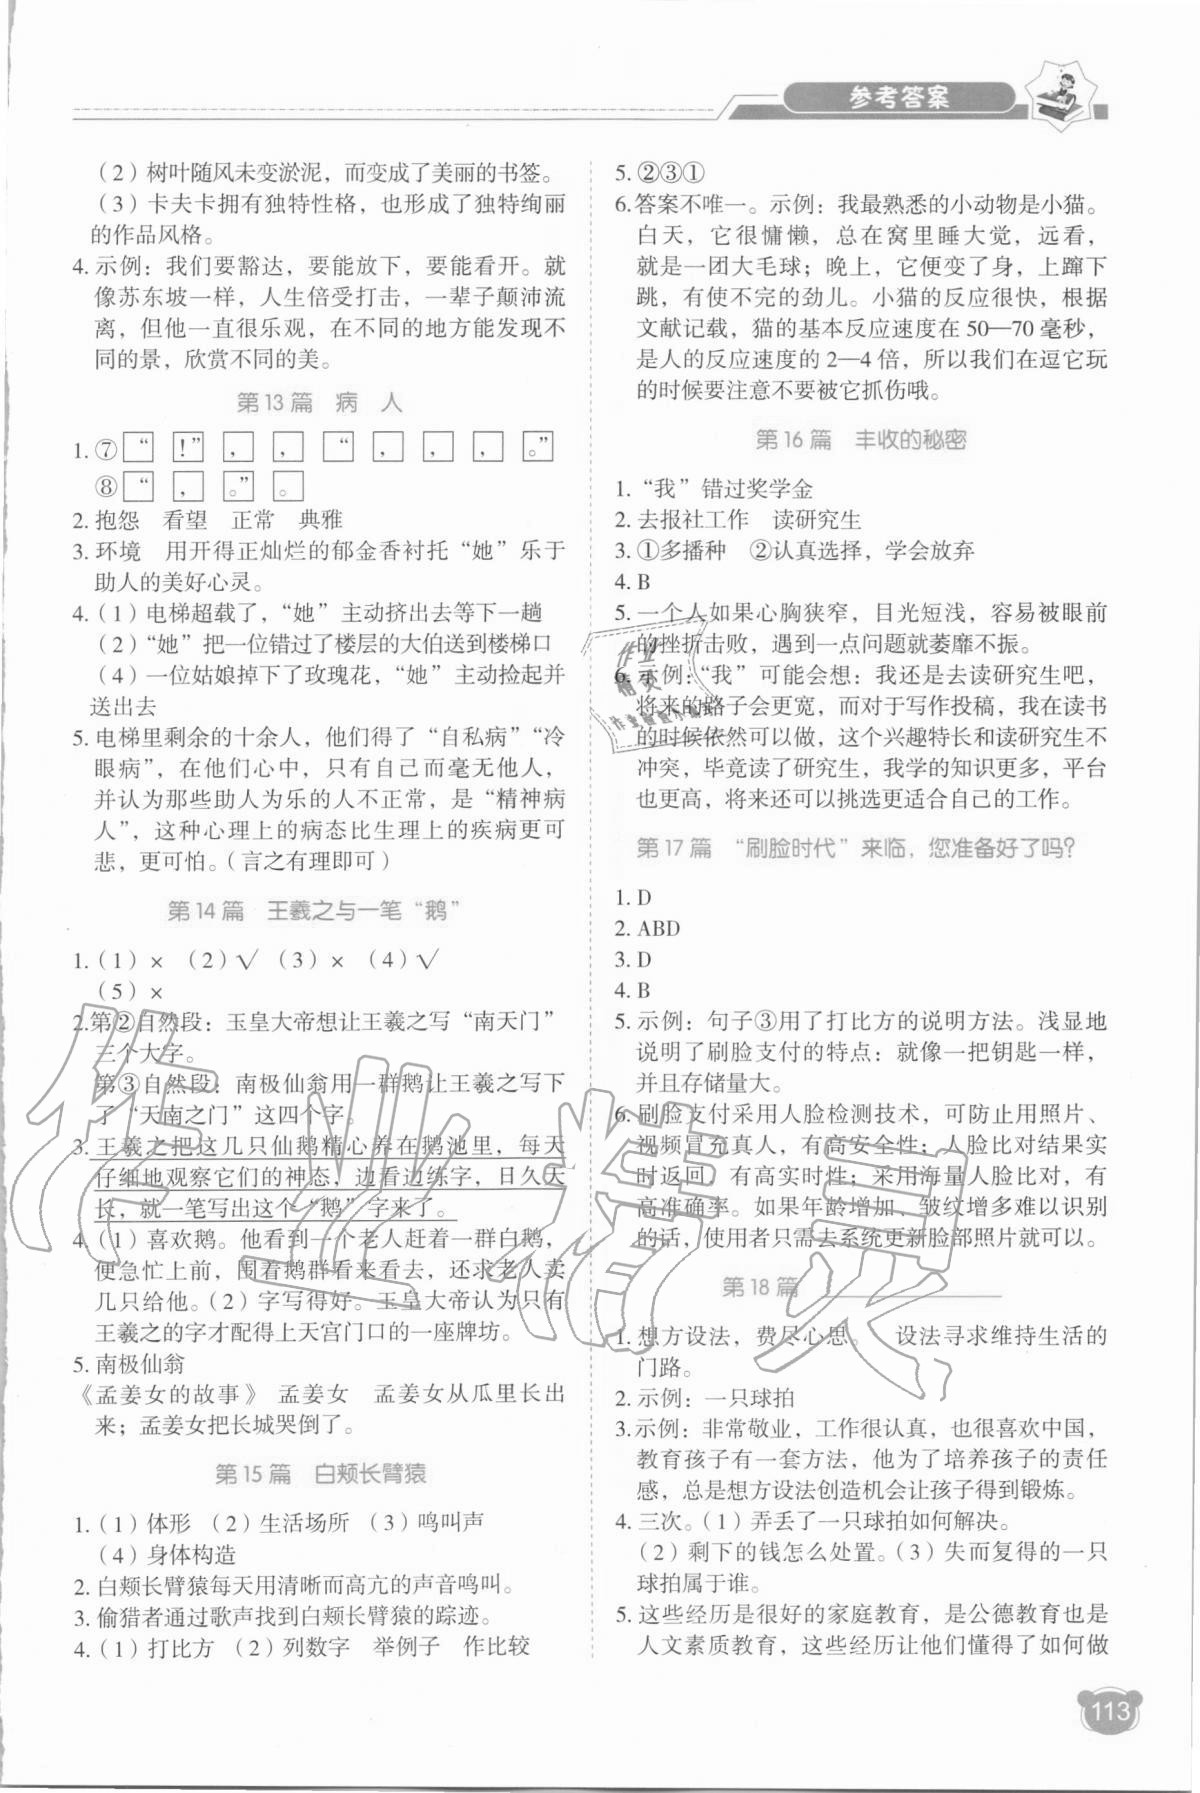 参考答案
（2）树叶随风未变淤泥，而变成了美丽的书签。
（3）卡夫卡拥有独特性格，也形成了独特绚丽
的作品风格。
4. 示例：我们要豁达，要能放下，要能看开。就
像苏东坡一样，人生倍受打击，一辈子颠沛流
离，但他一直很乐观，在不同的地方能发现不
同的景，欣赏不同的美。
第13篇 病 人
1. ⑦ “ ！” ， ， “ ， ， ， 。”
⑧ “ ， 。” 。
2. 抱怨 看望 正常 典雅
3. 环境 用开得正灿烂的郁金香衬托“她”乐于
助人的美好心灵。
4.（1）电梯超载了，“她”主动挤出去等下一趟
（2）“她”把一位错过了楼层的大伯送到楼梯口
（4）一位姑娘掉下了玫瑰花，“她”主动捡起并
送出去
5. 电梯里剩余的十余人，他们得了“自私病”“冷
眼病”，在他们心中，只有自己而毫无他人，
并认为那些助人为乐的人不正常，是“精神病
人”，这种心理上的病态比生理上的疾病更可
悲，更可怕。（言之有理即可）
第14篇 王羲之与一笔“鹅”
1.（1）× （2）√ （3）× （4）√
（5）×
2. 第②自然段：玉皇大帝想让王羲之写“南天门”
三个大字。
第③自然段：南极仙翁用一群鹅让王羲之写下
了“天南之门”这四个字。
3. 王羲之把这几只仙鹅精心养在鹅池里，每天
仔细地观察它们的神态，边看边练字，日久天
长，就一笔写出这个“鹅”字来了。
4.（1）喜欢鹅。他看到一个老人赶着一群白鹅，
便急忙上前，围着鹅群看来看去，还求老人卖
几只给他。（2）字写得好。玉皇大帝认为只有
王羲之的字才配得上天宫门口的一座牌坊。
5. 南极仙翁
《孟姜女的故事》 孟姜女 孟姜女从瓜里长出
来；孟姜女把长城哭倒了。
第15篇 白颊长臂猿
1.（1）体形 （2）生活场所 （3）鸣叫声
（4）身体构造
2. 白颊长臂猿每天用清晰而高亢的声音鸣叫。
3. 偷猎者通过歌声找到白颊长臂猿的踪迹。
4.（1）打比方 （2）列数字 举例子 作比较
5. ②③①
6. 答案不唯一。示例：我最熟悉的小动物是小猫。
白天，它很慵懒，总在窝里睡大觉，远看，
就是一团大毛球；晚上，它便变了身，上蹿下
跳，有使不完的劲儿。小猫的反应很快，根据
文献记载，猫的基本反应速度在50—70毫秒，
是人的反应速度的2—4倍，所以我们在逗它玩
的时候要注意不要被它抓伤哦。
第16篇 丰收的秘密
1. “我”错过奖学金
2. 去报社工作 读研究生
3. ①多播种 ②认真选择，学会放弃
4. B
5. 一个人如果心胸狭窄，目光短浅，容易被眼前
的挫折击败，遇到一点问题就萎靡不振。
6. 示例：“我”可能会想：还是去读研究生吧，
将来的路子会更宽，而对于写作投稿，我在读书
的时候依然可以做，这个兴趣特长和读研究生不
冲突，毕竟读了研究生，我学的知识更多，平台
也更高，将来还可以挑选更适合自己的工作。
第17篇 “刷脸时代”来临，您准备好了吗？
1. D
2. ABD
3. D
4. B
5. 示例：句子③用了打比方的说明方法。浅显地
说明了刷脸支付的特点：就像一把钥匙一样，
并且存储量大。
6. 刷脸支付采用人脸检测技术，可防止用照片、
视频冒充真人，有高安全性；人脸比对结果实
时返回，有高实时性；采用海量人脸比对，有
高准确率。如果年龄增加，皱纹增多难以识别
的话，使用者只需去系统更新脸部照片就可以。
第18篇
1. 想方设法，费尽心思。 设法寻求维持生活的
门路。
2. 示例：一只球拍
3. 示例：非常敬业，工作很认真，也很喜欢中国，
教育孩子有一套方法，他为了培养孩子的责任
感，总是想方设法创造机会让孩子得到锻炼。
4. 三次。（1）弄丢了一只球拍如何解决。
（2）剩下的钱怎么处置。（3）失而复得的一只
球拍属于谁。
5. 这些经历是很好的家庭教育，是公德教育也是
人文素质教育，这些经历让他们懂得了如何做
113
作业精灵